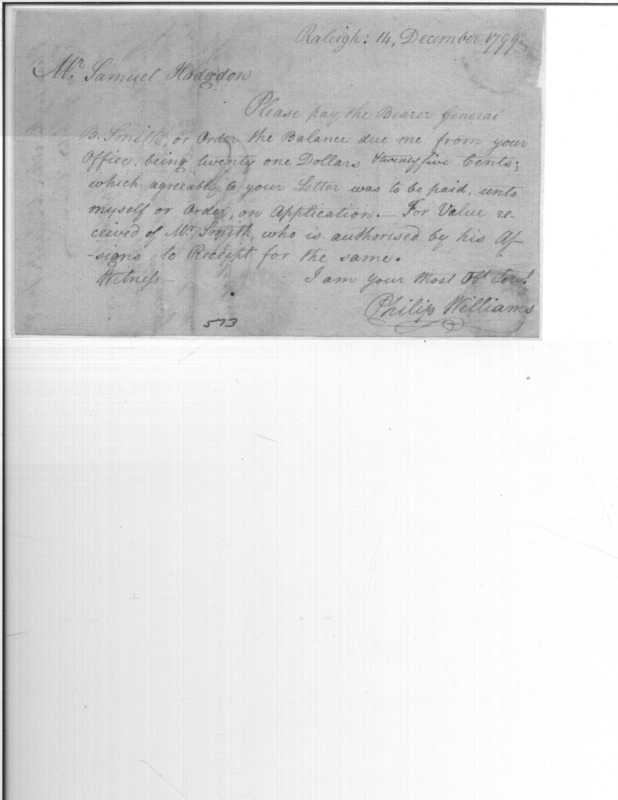 Raleigh: 14, December 1799
Mr. Samuel Hodgdon
Please pay the Bearer General
B. Smith, or Order the Balance due me from your
Office, being twenty one Dollars & twenty five Cents;
which, agreeably to your Letter was to be paid, unto
myself or Order, on Application. — For Value re-
ceived of Mr. Smith, who is authorised by his As-
-signs to Receipt for the same.
Witness — I am your Most Obt. Servt.
Philip Williams
573